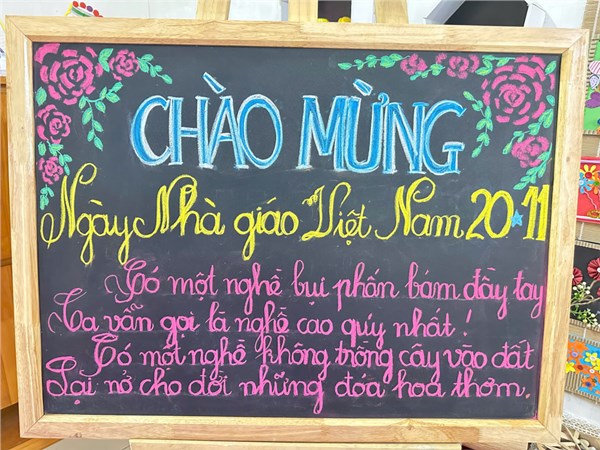 CHÀO MỪNG
Ngày Nhà giáo Việt Nam 20★11
Có một nghề bụi phấn bám đầy tay
Ta vẫn gọi là nghề cao quý nhất!
Có một nghề không trồng cây vào đất
Lại nở cho đời những đóa hoa thơm.